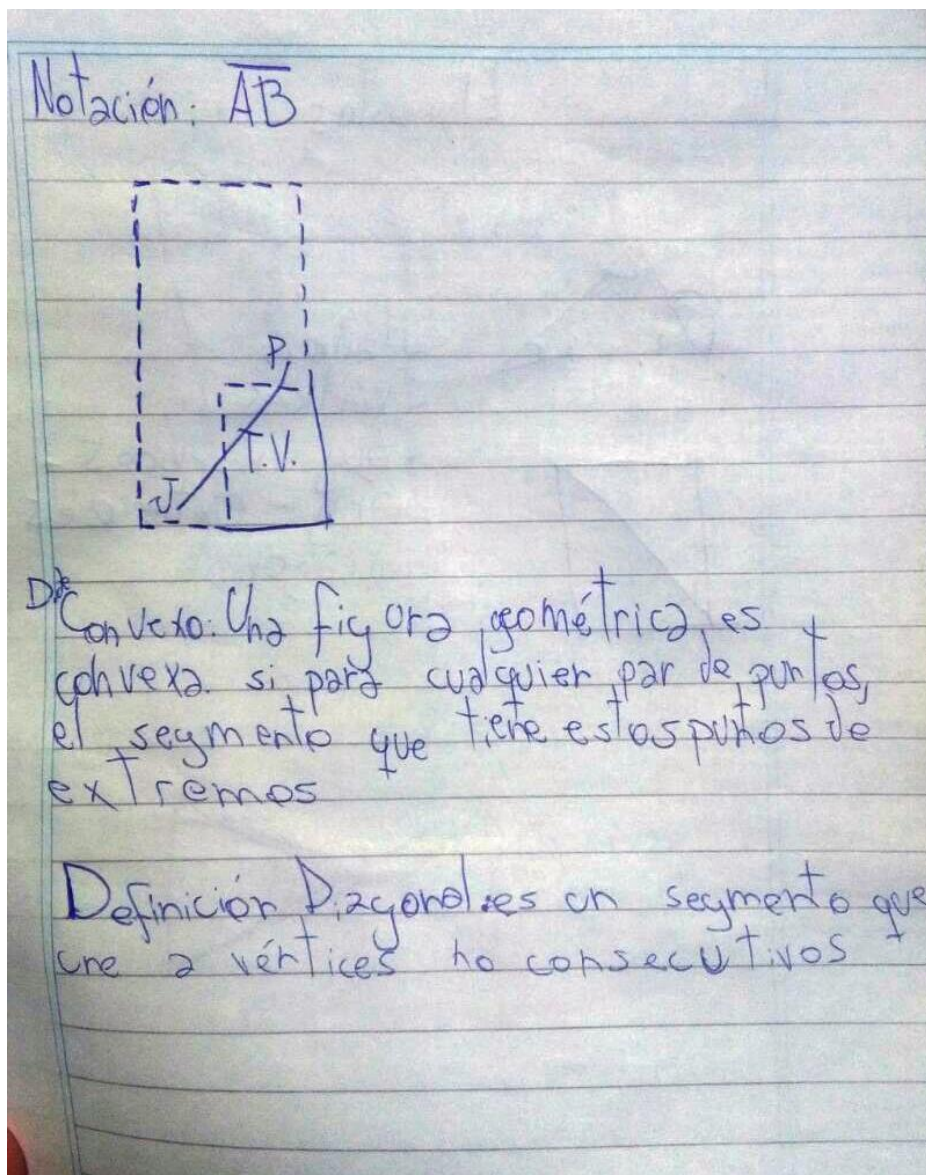 Notación: AB
P
T.V.
J
Def
Convexo: Una figura geométrica, es
convexa. si para cualquier par de puntos,
el segmento que tiene estos puntos de
extremos
Definición Diagonal: es un segmento que
une 2 vértices no consecutivos